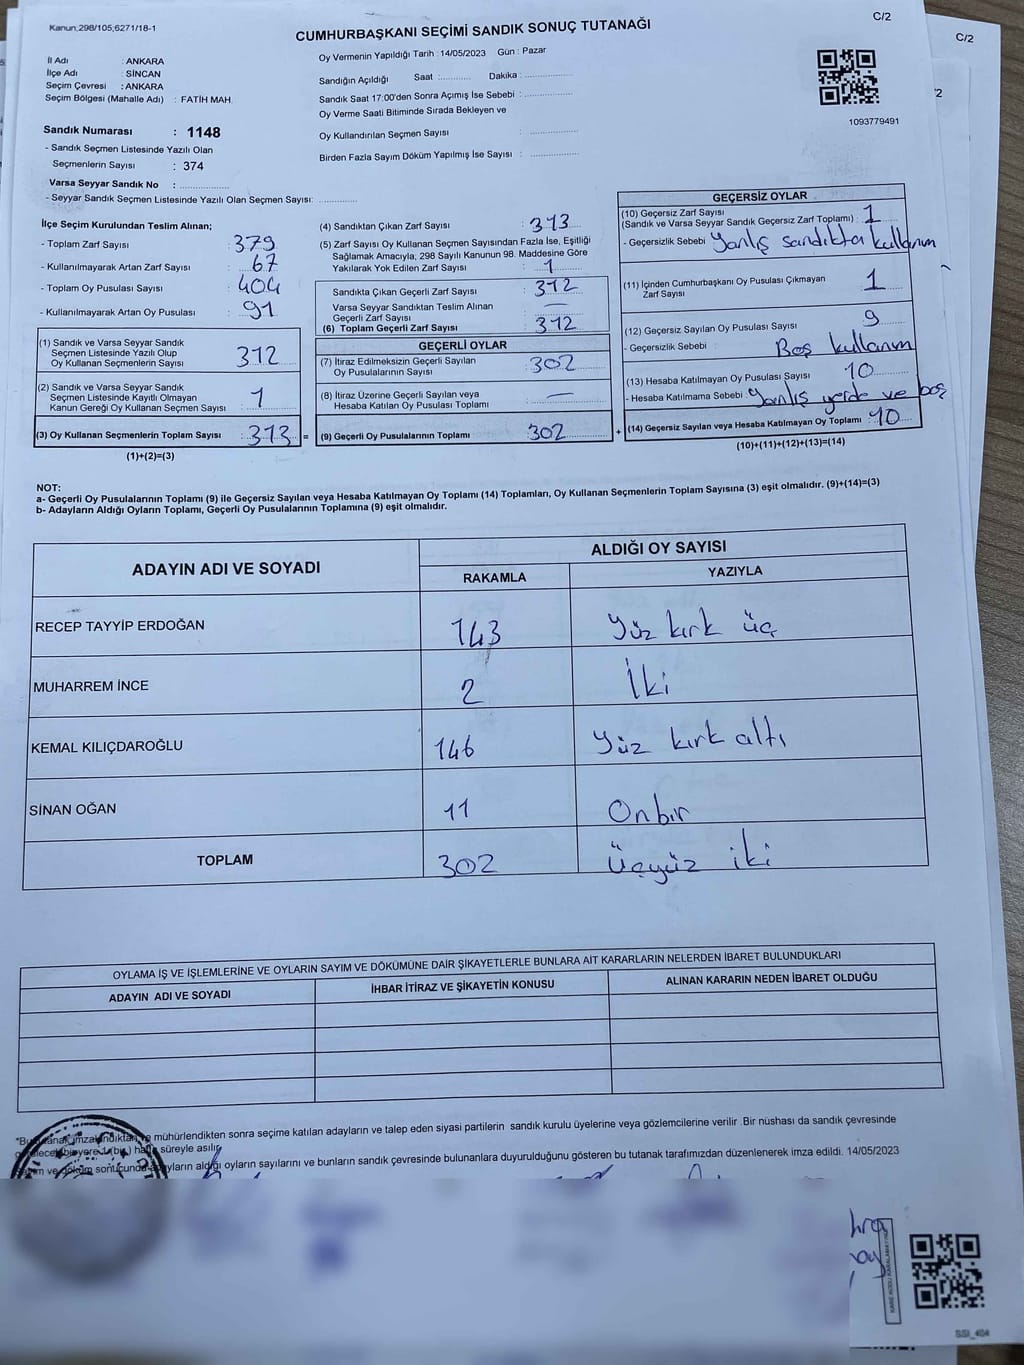 Kanun;298/105;6271/18-1
C/2
C/2
CUMHURBAŞKANI SEÇİMİ SANDIK SONUÇ TUTANAĞI
İl Adı : ANKARA
İlçe Adı : SİNCAN
Seçim Çevresi : ANKARA
Seçim Bölgesi (Mahalle Adı) : FATİH MAH.
Sandık Numarası : 1148
- Sandık Seçmen Listesinde Yazılı Olan
Seçmenlerin Sayısı : 374
Varsa Seyyar Sandık No :
- Seyyar Sandık Seçmen Listesinde Yazılı Olan Seçmen Sayısı:
Oy Vermenin Yapıldığı Tarih : 14/05/2023 Gün : Pazar
Sandığın Açıldığı Saat : Dakika :
Sandık Saat 17:00'den Sonra Açımış İse Sebebi :
Oy Verme Saati Bitiminde Sırada Bekleyen ve
Oy Kullandırılan Seçmen Sayısı :
Birden Fazla Sayım Döküm Yapılmış İse Sayısı :
1093779491
İlçe Seçim Kurulundan Teslim Alınan;
- Toplam Zarf Sayısı : 379
- Kullanılmayarak Artan Zarf Sayısı : 67
- Toplam Oy Pusulası Sayısı : 404
- Kullanılmayarak Artan Oy Pusulası : 91
(1) Sandık ve Varsa Seyyar Sandık
Seçmen Listesinde Yazılı Olup
Oy Kullanan Seçmenlerin Sayısı : 312
(2) Sandık ve Varsa Seyyar Sandık
Seçmen Listesinde Kayıtlı Olmayan
Kanun Gereği Oy Kullanan Seçmen Sayısı : 1
(3) Oy Kullanan Seçmenlerin Toplam Sayısı : 313
(1)+(2)=(3)
(4) Sandıktan Çıkan Zarf Sayısı : 313
(5) Zarf Sayısı Oy Kullanan Seçmen Sayısından Fazla İse, Eşitliği
Sağlamak Amacıyla, 298 Sayılı Kanunun 98. Maddesine Göre
Yakılarak Yok Edilen Zarf Sayısı : 1
Sandıkta Çıkan Geçerli Zarf Sayısı : 312
Varsa Seyyar Sandıktan Teslim Alınan
Geçerli Zarf Sayısı : —
(6) Toplam Geçerli Zarf Sayısı : 312
GEÇERLİ OYLAR
(7) İtiraz Edilmeksizin Geçerli Sayılan
Oy Pusulalarının Sayısı : 302
(8) İtiraz Üzerine Geçerli Sayılan veya
Hesaba Katılan Oy Pusulaları Toplamı : —
= (9) Geçerli Oy Pusulalarının Toplamı : 302
GEÇERSİZ OYLAR
(10) Geçersiz Zarf Sayısı
(Sandık ve Varsa Seyyar Sandık Geçersiz Zarf Toplamı) : 1
- Geçersizlik Sebebi : Yanlış sandıkta kullanım
(11) İçinden Cumhurbaşkanı Oy Pusulası Çıkmayan
Zarf Sayısı : 1
(12) Geçersiz Sayılan Oy Pusulası Sayısı : 9
- Geçersizlik Sebebi : Boş kullanım
(13) Hesaba Katılmayan Oy Pusulası Sayısı : 10
- Hesaba Katılmama Sebebi : Yanlış yerde ve boş
+ (14) Geçersiz Sayılan veya Hesaba Katılmayan Oy Toplamı : 10
(10)+(11)+(12)+(13)=(14)
NOT:
a- Geçerli Oy Pusulalarının Toplamı (9) ile Geçersiz Sayılan veya Hesaba Katılmayan Oy Toplamı (14) Toplamları, Oy Kullanan Seçmenlerin Toplam Sayısına (3) eşit olmalıdır. (9)+(14)=(3)
b- Adayların Aldığı Oyların Toplamı, Geçerli Oy Pusulalarının Toplamına (9) eşit olmalıdır.
ADAYIN ADI VE SOYADI
ALDIĞI OY SAYISI
RAKAMLA YAZIYLA
RECEP TAYYİP ERDOĞAN 143 Yüz kırk üç
MUHARREM İNCE 2 İki
KEMAL KILIÇDAROĞLU 146 Yüz kırk altı
SİNAN OĞAN 11 Onbir
TOPLAM 302 Üçyüz iki
OYLAMA İŞ VE İŞLEMLERİNE VE OYLARIN SAYIM VE DÖKÜMÜNE DAİR ŞİKAYETLERLE BUNLARA AİT KARARLARIN NELERDEN İBARET BULUNDUKLARI
ADAYIN ADI VE SOYADI İHBAR İTİRAZ VE ŞİKAYETİN KONUSU ALINAN KARARIN NEDEN İBARET OLDUĞU
mühürlendikten sonra seçime katılan adayların ve talep eden siyasi partilerin sandık kurulu üyelerine veya gözlemcilerine verilir .Bir nüshası da sandık çevresinde
hafta süreyle asılır.
aldığı oyların sayılarını ve bunların sandık çevresinde bulunanlara duyurulduğunu gösteren bu tutanak tarafımızdan düzenlenerek imza edildi. 14/05/2023